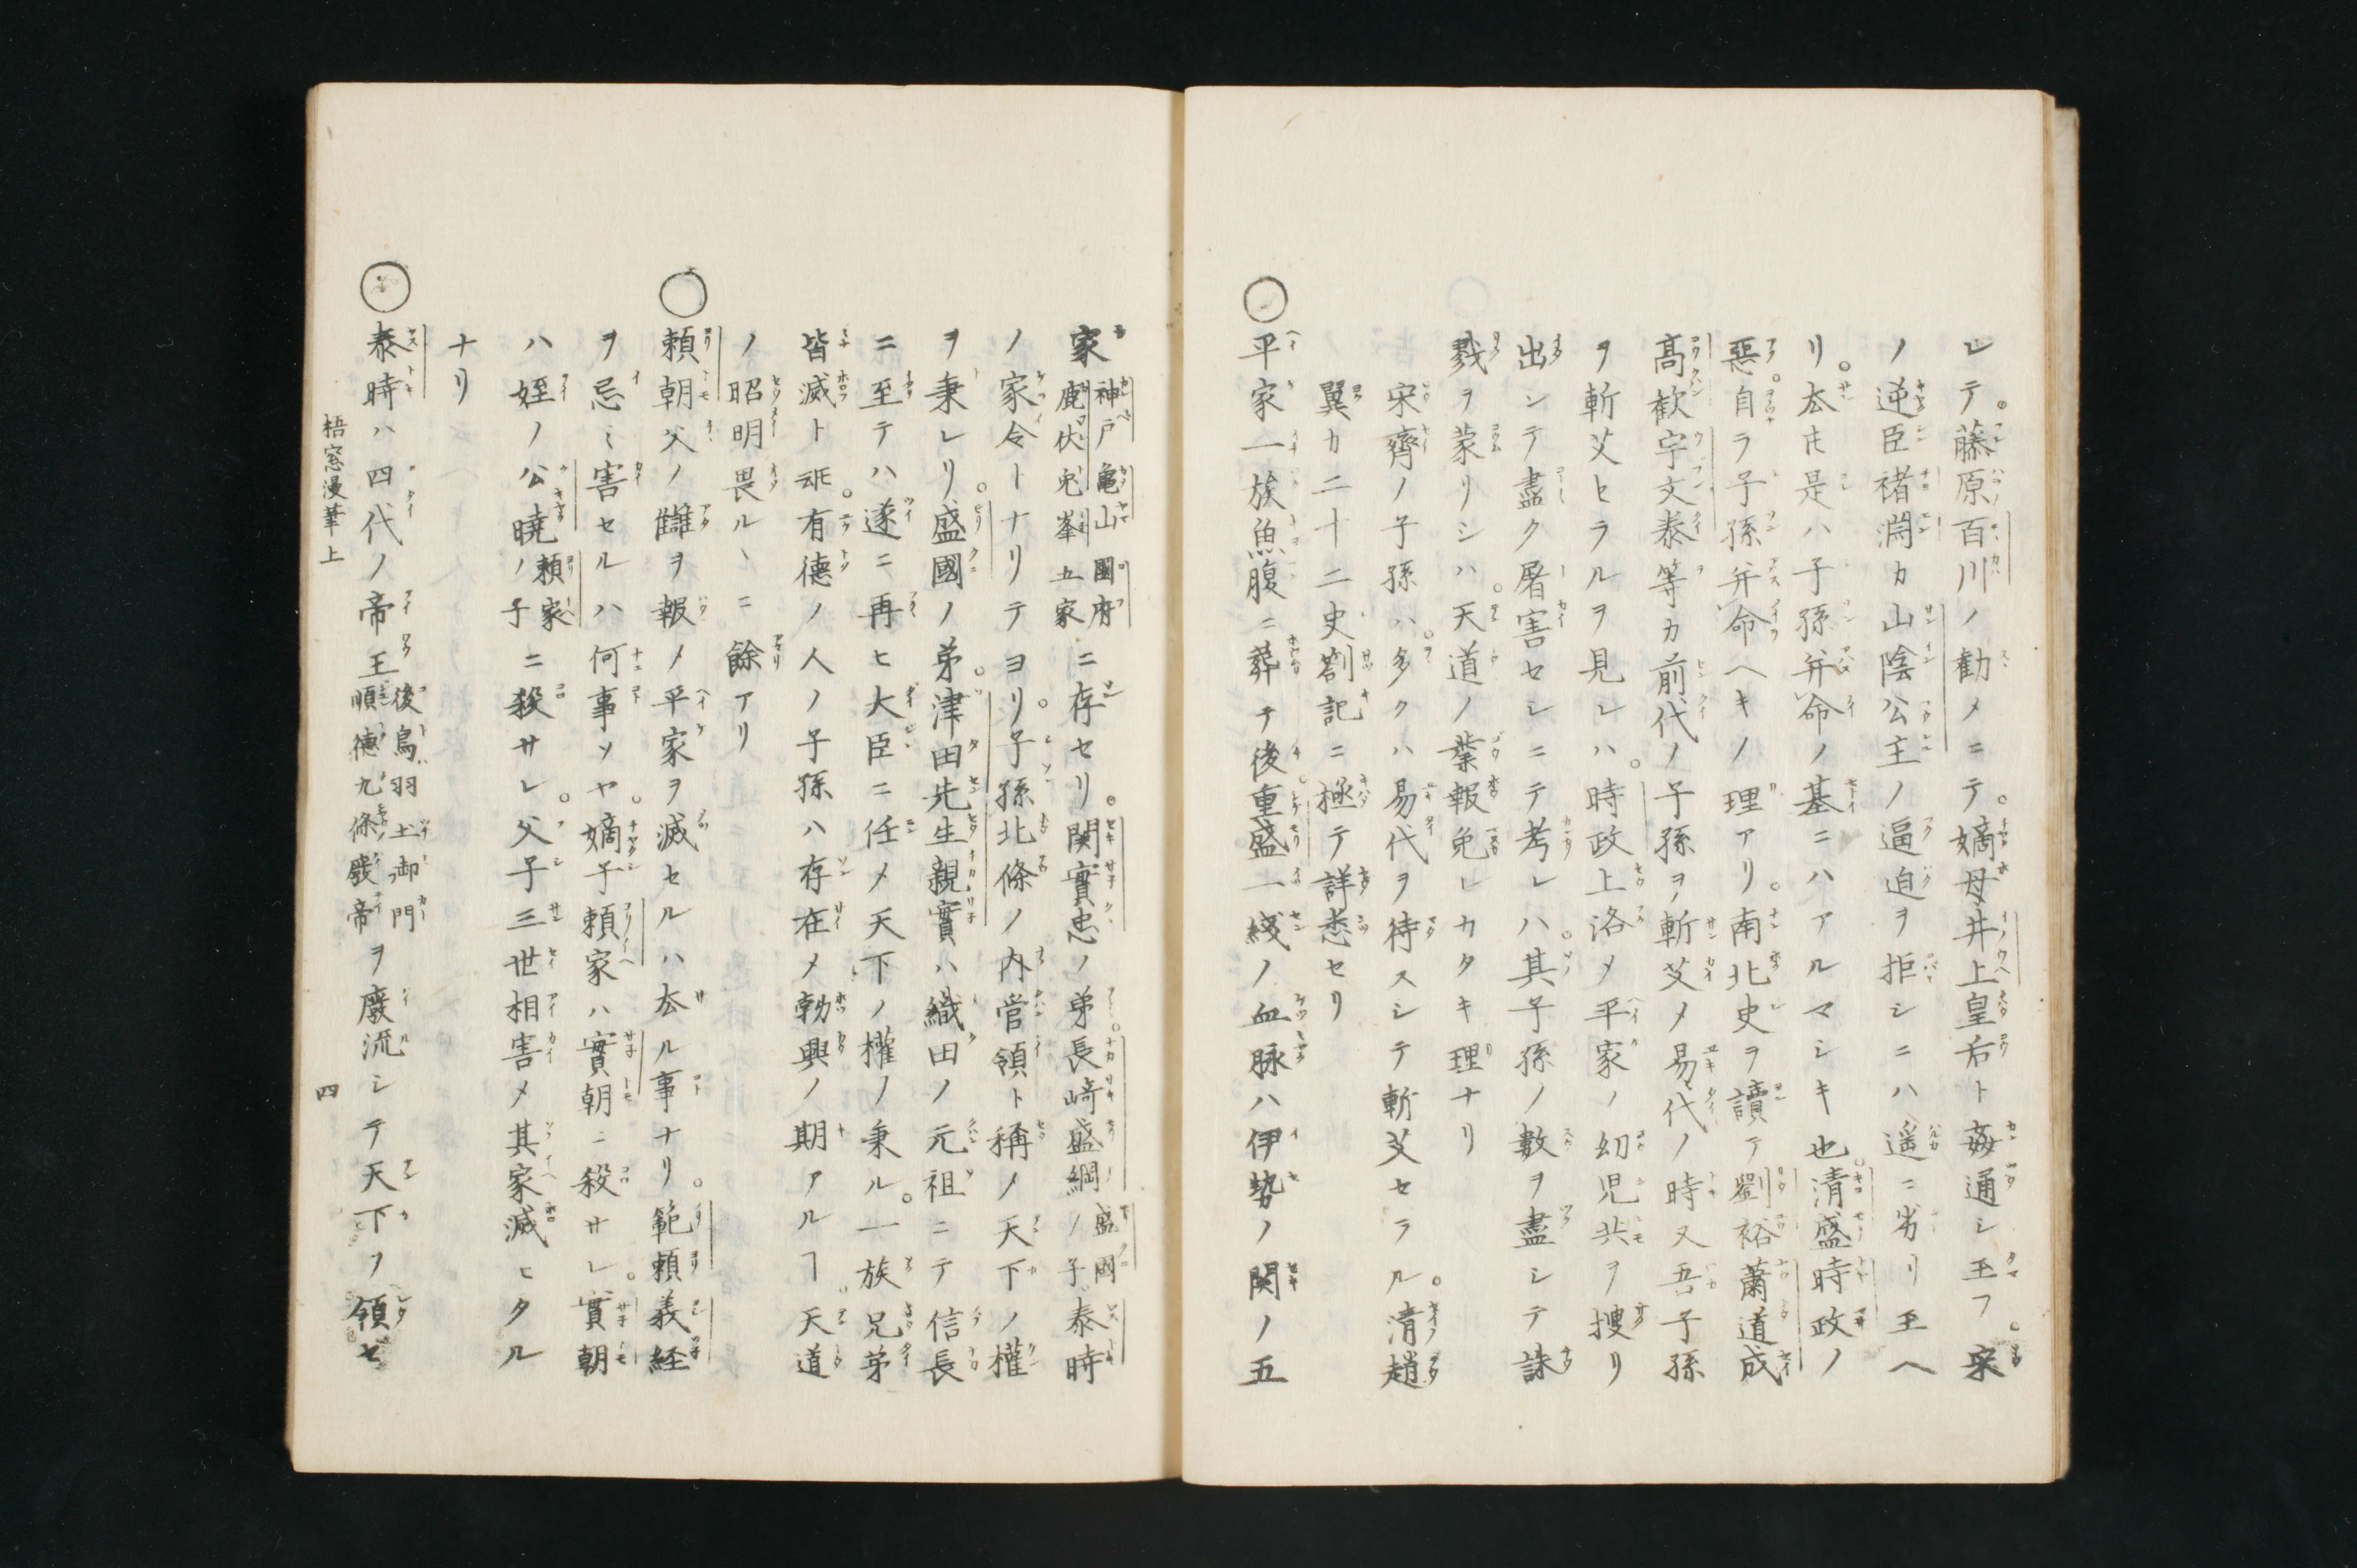 レテ藤原百川ノ勧メニテ嫡母井上皇后ト姦通シ玉フ宋
ノ逆臣褚淵カ山陰公主ノ逼迫ヲ拒シニハ遥ニ劣リ玉ヘ
リ○𠫵𪜈是ハ子孫并命ノ基ニハアルマシキ也清盛時政ノ
惡自ラ子孫并命ヘキノ理アリ南北史ヲ讀テ劉裕蕭道成
高歓宇文泰等カ前代ノ子孫ヲ斬芟メ易代ノ時又吾子孫
ヲ斬芟ヒラルヲ見レハ時政上洛メ平家ノ幼児共ヲ捜リ
出ンテ盡ク屠害セシニテ考レハ其子孫ノ數ヲ盡シテ誅
戮ヲ蒙リシハ天道ノ業報免レカタキ理ナリ
宋齊ノ子孫ハ多クハ易代ヲ待スシテ斬芟セラル清趙
翼カ二十二史劄記ニ極テ詳悉セリ
○平家一族魚腹ニ葬テ後重盛一綫ノ血脉ハ伊勢ノ関ノ五
家神戸亀山國府鹿伏兎峯五家ニ存セリ関實忠ノ弟長崎盛綱ノ子盛國泰時
ノ家令トナリテヨリ子孫北條ノ内管領ト稱メ天下ノ權
ヲ秉レリ盛國ノ弟津田先生親實ハ織田ノ元祖ニテ信長
ニ至テハ遂ニ再ヒ大臣ニ任メ天下ノ權ノ秉ル一族兄弟
皆滅ト𪜈有徳ノ人ノ子孫ハ存在メ勃興ノ期アルヿ天道
ノ昭明畏ルヽニ餘アリ
○頼朝父ノ讎ヲ報メ平家ヲ滅セルハ𠫵ル事ナリ範頼義経
ヲ忌ミ害セルハ何事ソヤ嫡子頼家ハ實朝ニ殺サレ實朝
ハ姪ノ公曉頼家ノ子ニ殺サレ父子三世相害メ其家滅ヒタル
ナリ
○泰時ハ四代ノ帝王後鳥羽土御門順徳九條廢帝ヲ廢流シテ天下ヲ領セ
梧窓漫筆上
四